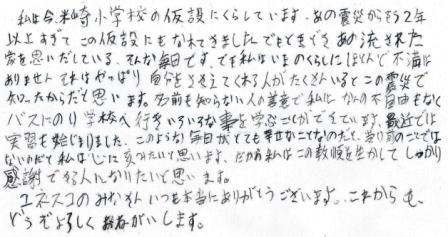 私は今、米崎小学校の仮設にくらしています。あの震災からもう2年
以上すぎてこの仮設にもなれてきました。でもときどきあの流された
家を思いだしている、そんな毎日です。でも私はいまのくらしにほとんど不満は
ありません。それはやっぱり自分をささえてくれる人がたくさんいるとこの震災で
知ったからだと思います。名前も知らない人の善意で私は なんの不自由もなく
バスにのり学校へ行きいろいろな事を学ぶことができています。最近では
実習も始まりました。このような毎日がとても幸せなことなのだと、当り前のことでは
ないのだと私は心に まみたいと思います。だから私はこの教順を生かして しっかり
感謝できる人になりたいと思います。
ユネスコのみなさん いつも本当にありがとうございます。これからも、
どうぞよろしく お願いがいします。